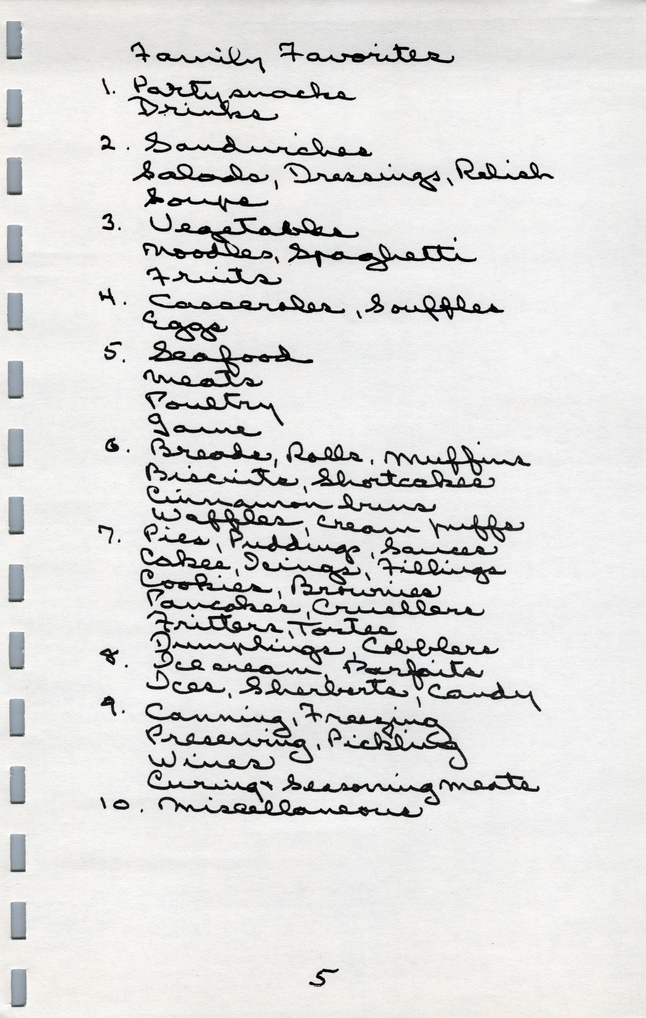 Family Favorites
1. Party snacks
Drinks
2. Sandwiches
Salads, Dressings, Relish
Soups
3. Vegetables
Noodles, Spaghetti
Fruits
4. Casseroles, Souffles
Eggs
5. Seafood
Meats
Poultry
Game
6. Breads, Rolls, Muffins
Biscuits, Shortcakes
Cinnamon buns
Waffles, Cream puffs
7. Pies, Puddings, Sauces
Cakes, Icings, Fillings
Cookies, Brownies
Pancakes, Cruellers
Fritters, Tortes
Dumplings, Cobblers
8. Ice cream, Parfaits
Ices, Sherberts, Candy
9. Canning, Freezing
Preserving, Pickling
Wines
Curing & Seasoning meats
10. Miscellaneous
5